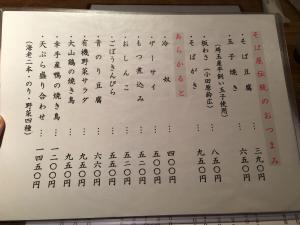 そば屋伝統のおつまみ
・そば豆腐 … 三九〇円
・玉子焼き … 六五〇円
(埼玉産平飼い玉子使用)
・板わさ(小田原鈴廣) … 八五〇円
・そばがき … 九五〇円
あらかると
・冷奴 … 四〇〇円
・ザーサイ …
・もつ煮込み … 五五〇円
・おしんこ …
・ごぼうきんぴら … 五五〇円
・青のり豆腐 … 六六〇円
・有機野菜サラダ … 九五〇円
・大山鶏の焼き鳥 … 九五〇円
・岩手産鴨の焼き鳥 … 一二〇〇円
・天ぷら盛り合わせ … 一四五〇円
(海老二本・のり・野菜四種)